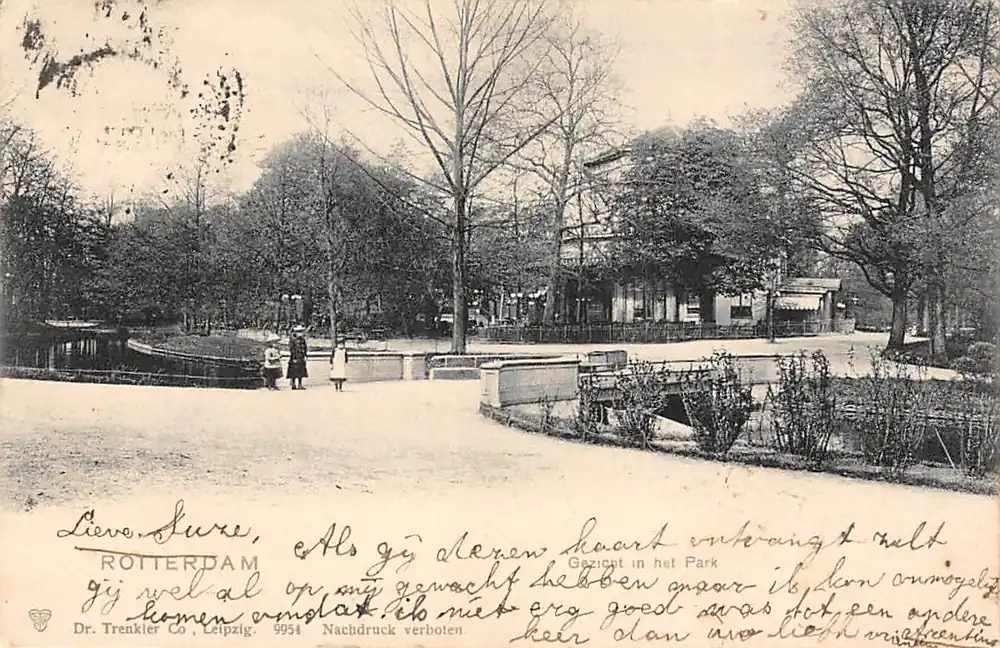 Lieve Suze,
ROTTERDAM
Gezicht in het Park
Als gij dezen kaart ontvangt zult
gij wel al op mij gewacht hebben maar ik kon onmogelijk
komen omdat ik niet erg goed was tot een andere
keer dan uw liefh vr
Dr. Trenkler Co., Leipzig. 9954 Nachdruck verboten.